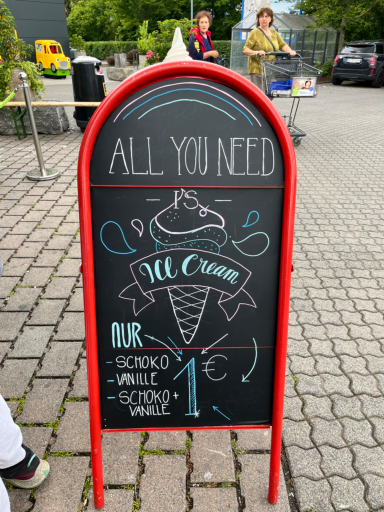 ALL YOU NEED
I'S
ICE CREAM
NUR
- SCHOKO
- VANILLE
- SCHOKO +
VANILLE
1 €